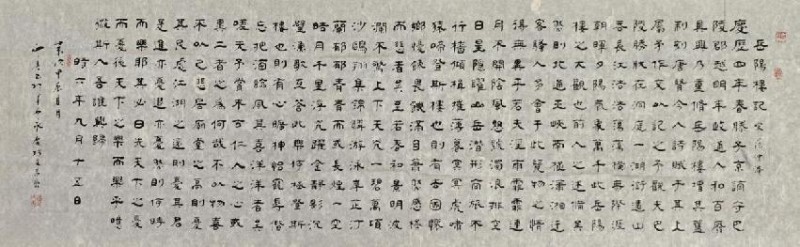 岳陽樓記 宋范仲淹
慶歷四年春滕子京謫守巴
陵郡越明年政通人和百廢
具興乃重修岳陽樓增其舊
制刻唐賢今人詩賦于其上
屬予作文以記之予觀夫巴
陵勝狀在洞庭一湖銜遠山
吞長江浩浩湯湯橫無際涯
朝暉夕陰氣象萬千此岳陽
樓之大觀也前人之述備矣
然則北通巫峽南極瀟湘遷
客騷人多會于此覽物之情
得無異乎若夫淫雨霏霏連
月不開陰風怒號濁浪排空
日星隱曜山岳潛形商旅不
行檣傾楫摧薄暮冥冥虎嘯
猿啼登斯樓也則有去國懷
鄉憂讒畏譏滿目蕭然感極
而悲者矣至若春和景明波
瀾不驚上下天光一碧萬頃
沙鷗翔集錦鱗游泳岸芷汀
蘭郁郁青青而或長煙一空
皓月千里浮光躍金靜影沉
璧漁歌互答此樂何極登斯
樓也則有心曠神怡寵辱皆
忘把酒臨風其喜洋洋者矣
嗟夫予嘗求古仁人之心或
異二者之爲何哉不以物喜
不以己悲居廟堂之高則憂
其民處江湖之遠則憂其君
是進亦憂退亦憂然則何時
而樂耶其必曰先天下之憂
而憂後天下之樂而樂乎噫
微斯人吾誰與歸
時六年九月十五日